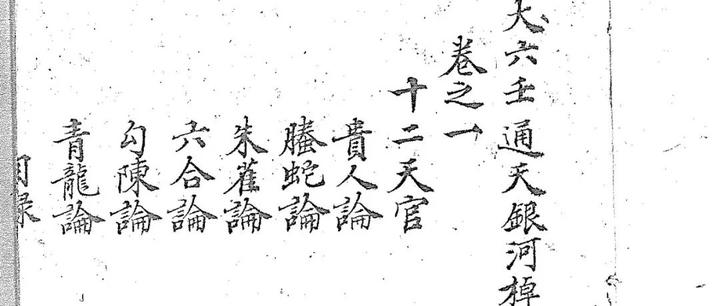 大六壬通天銀河棹
卷之一
十二天官
貴人論
螣蛇論
朱雀論
六合論
勾陳論
青龍論
目録